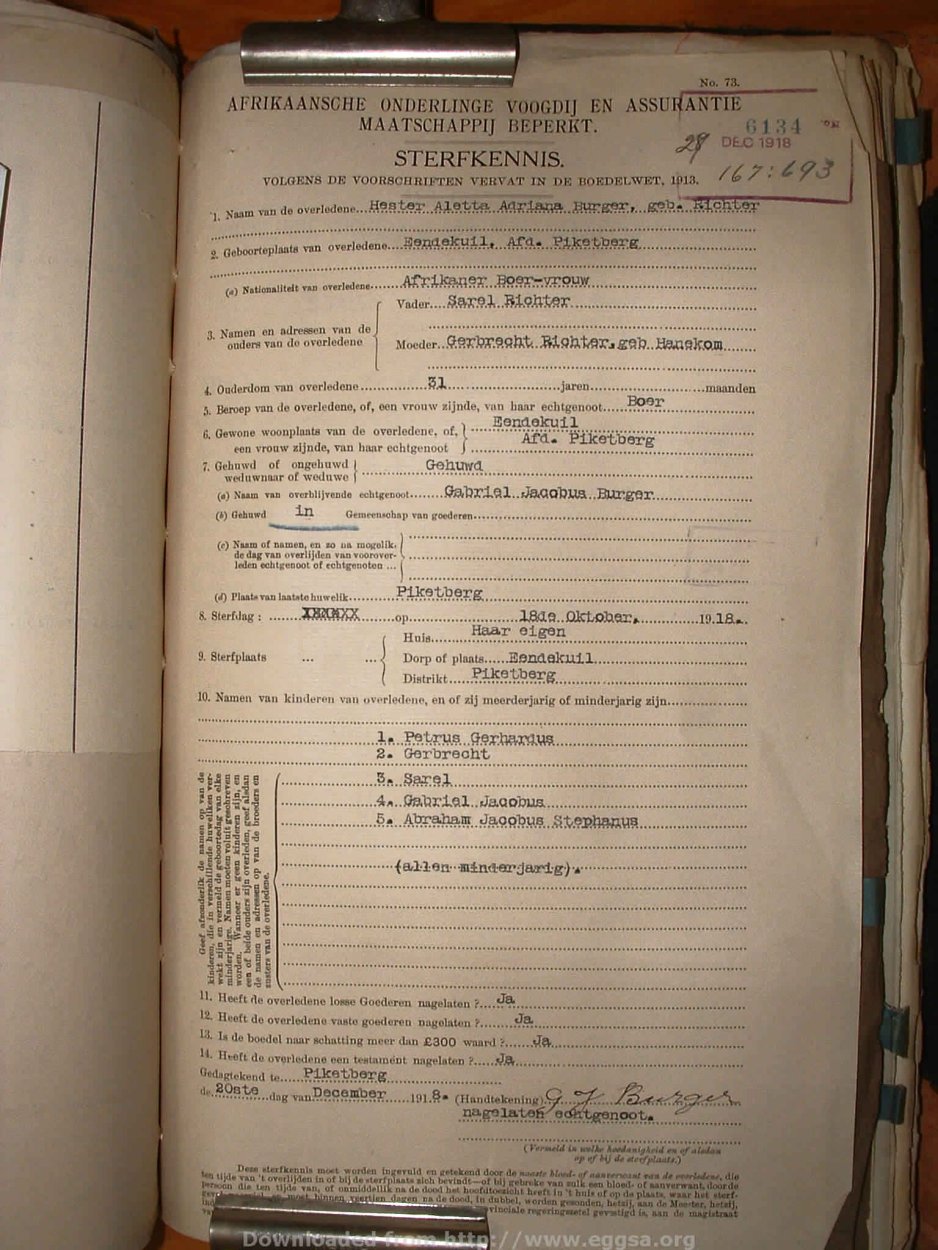 No. 73.
AFRIKAANSCHE ONDERLINGE VOOGDIJ EN ASSURANTIE
MAATSCHAPPIJ BEPERKT.
6134
28 DEC 1918
167:693
STERFKENNIS.
VOLGENS DE VOORSCHRIFTEN VERVAT IN DE BOEDELWET, 1913.
1. Naam van de overledene... Hester Aletta Adriana Burger, geb. Richter
2. Geboorteplaats van overledene... Eendekuil, Afd. Piketberg
(a) Nationaliteit van overledene... Afrikaner Boer-vrouw
3. Namen en adressen van de ouders van de overledene
Vader... Sarel Richter
Moeder... Gerbrecht Richter, geb Hanekom
4. Ouderdom van overledene... 31 ...jaren... maanden
5. Beroep van de overledene, of, een vrouw zijnde, van haar echtgenoot... Boer
6. Gewone woonplaats van de overledene, of, een vrouw zijnde, van haar echtgenoot
Eendekuil
Afd. Piketberg
7. Gehuwd of ongehuwd weduwnaar of weduwe
Gehuwd
(a) Naam van overblijvende echtgenoot... Gabriel Jacobus Burger
(b) Gehuwd in Gemeenschap van goederen...
(c) Naam of namen, en zo na mogelik,
de dag van overlijden van voorover-
leden echtgenoot of echtgenoten ...
(d) Plaats van laatste huwelik... Piketberg
8. Sterfdag : ... op... 18de Oktober, 1918.
9. Sterfplaats ... ...
Huis... Haar eigen
Dorp of plaats... Eendekuil
Distrikt... Piketberg
10. Namen van kinderen van overledene, en of zij meerderjarig of minderjarig zijn...
1. Petrus Gerhardus
2. Gerbrecht
3. Sarel
4. Gabriel Jacobus
5. Abraham Jacobus Stephanus
(allen minderjarig).
Geef afzonderlik de namen op van de
kinderen, die in verschillende huweliken ver-
wekt zijn en vermeld de geboortedag van elke
minderjarige. Namen moeten voluit geschreven
worden. Wanneer er geen kinderen zijn, en
een of beide ouders zijn overleden, geef alsdan
de namen en adressen op van de broeders en
zusters van de overledene.
11. Heeft de overledene losse Goederen nagelaten ?... Ja
12. Heeft de overledene vaste goederen nagelaten ?... Ja
13. Is de boedel naar schatting meer dan £300 waard ?... Ja
14. Heeft de overledene een testament nagelaten ?... Ja
Gedagtekend te... Piketberg
de 20ste dag van December 1918. (Handtekening) G J Burger
nagelaten echtgenoot.
(Vermeld in welke hoedanigheid en of alsdan
op of bij de sterfplaats.)
Deze sterfkennis moet worden ingevuld en getekend door de naaste bloed- of aanverwant van de overledene, die
ten tijde van 't overlijden in of bij de sterfplaats zich bevindt—of bij gebreke van zulk een bloed- of aanverwant, door de
persoon die ten tijde van, of onmiddellik na de dood het hoofdtoezicht heeft in 't huis of op de plaats, waar het sterf-
moet binnen veertien dagen na de dood, in dubbel, worden gezonden, hetzij, aan de Meester, hetzij,
provinciale regeringszetel gevestigd is, aan de magistraat
Downloaded from http://www.eggsa.org